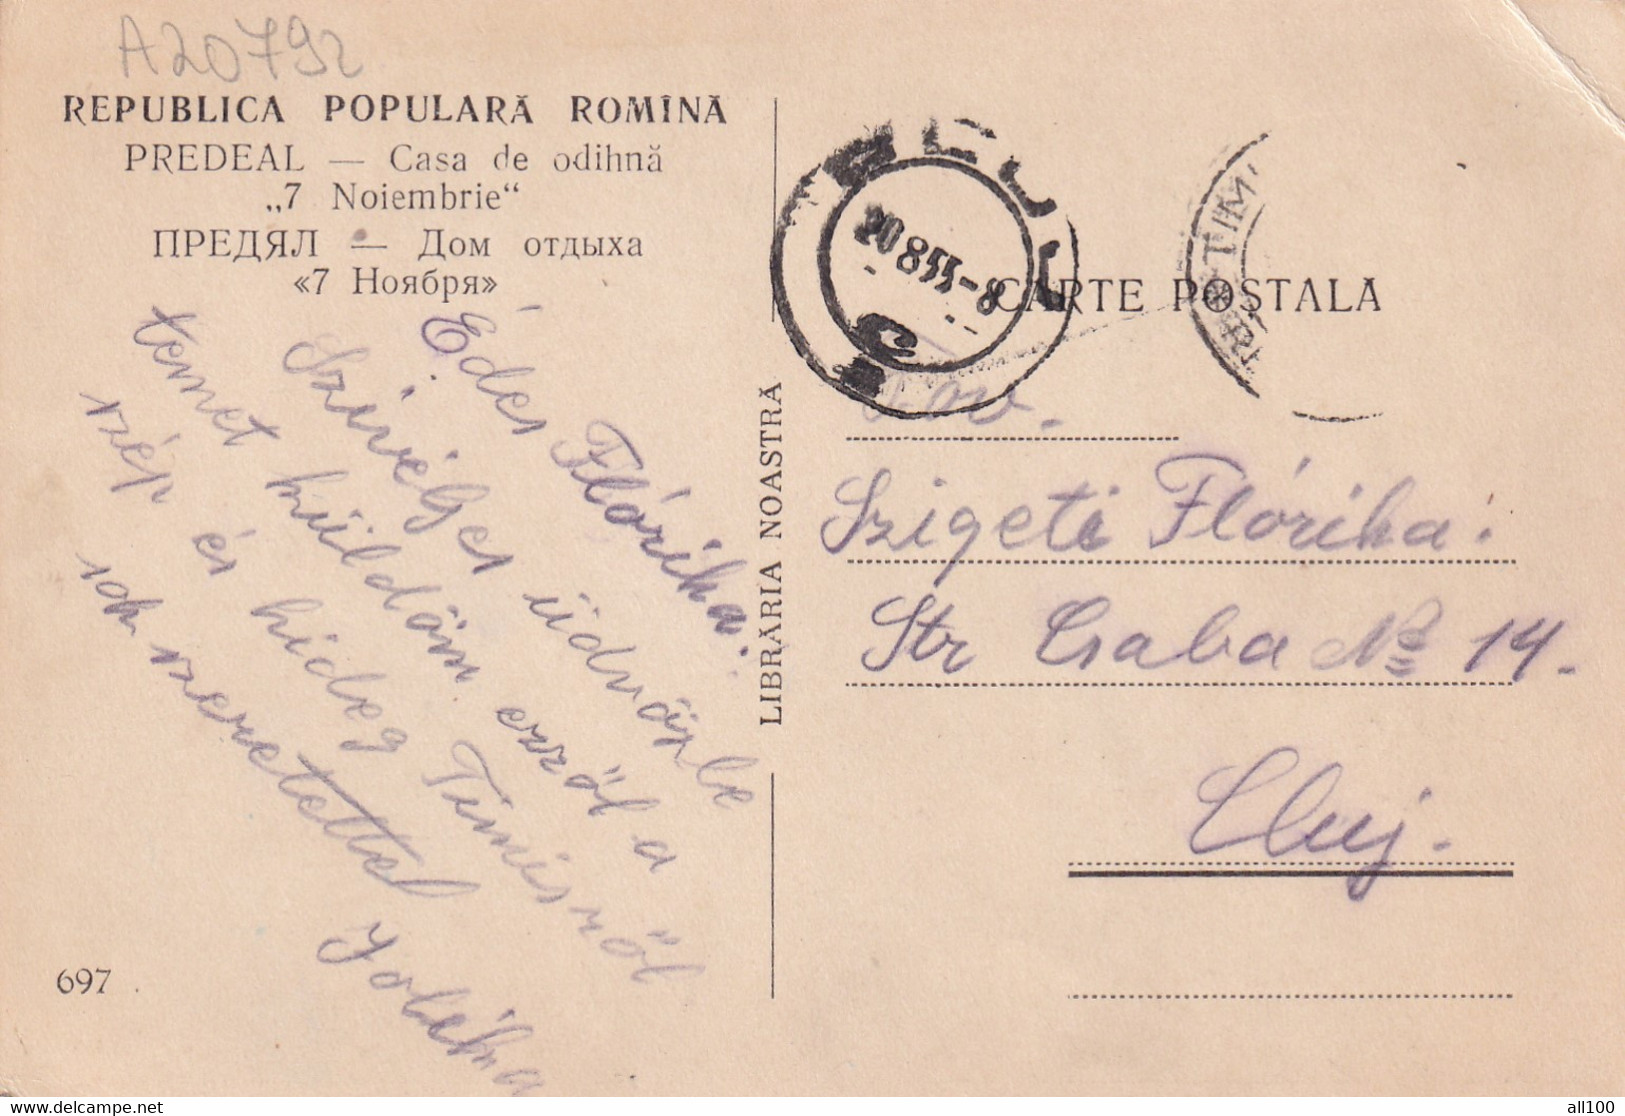 A20792
REPUBLICA POPULARĂ ROMÎNĂ
PREDEAL — Casa de odihnă
„7 Noiembrie“
ПРЕДЯЛ — Дом отдыха
«7 Ноября»
Édes Flórika.
Szivélyes üdvözle
temet küldöm erről a
szép és hideg Timisről
sok szeretettel
Jolétka
697
LIBRĂRIA NOASTRĂ
CLUJ
20 8 55-8
TIMI
CARTE POSTALA
Tov.
Szigeti Flórika.
Str Csaba No 14.
Cluj.
delcampe.net
all100